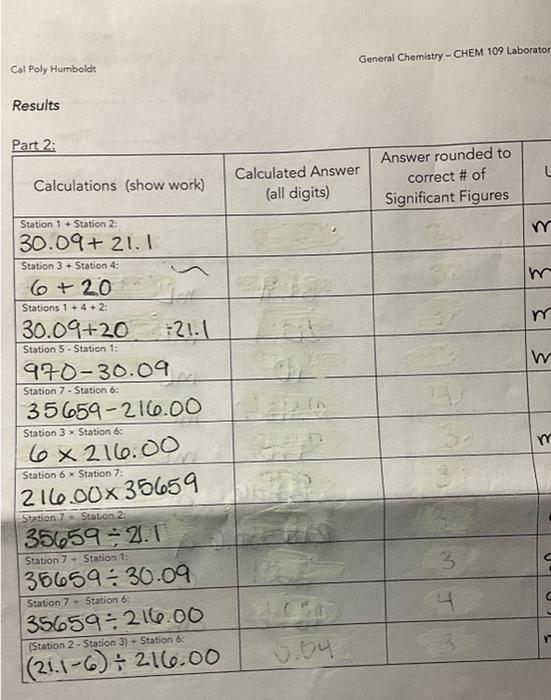 Cal Poly Humboldt
General Chemistry – CHEM 109 Laborator
Results
Part 2:
Calculations (show work)
Calculated Answer
(all digits)
Answer rounded to
correct # of
Significant Figures
Station 1 + Station 2:
30.09+ 21.1
m
Station 3 + Station 4:
6 + 20
m
Stations 1 + 4 + 2:
30.09+20 +21.1
m
Station 5 - Station 1:
970-30.09
Station 7 - Station 6:
35659-216.00
Station 3 × Station 6:
6 x 216.00
m
Station 6 × Station 7:
216.00x35659
3
Station 7 ÷ Station 2:
35659÷21.1
3
Station 7 ÷ Station 1:
35659÷30.09
3
Station 7 ÷ Station 6:
35659÷216.00
4
(Station 2 - Station 3) ÷ Station 6:
(21.1-6)÷216.00
0.04
3